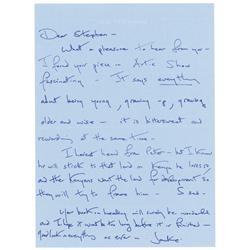 Dear Stephen —
What a pleasure to hear from you —
I found your piece — Artie Shaw
fascinating — It says everything
about being young, growing up, growing
older and wise — it is bittersweet and
rewarding at the same time —
I haven't heard from Peter — but I know
he will stick to that land — Kenya he loves so
and the Kenyans want the land for development so
they will try to frame him — So sad —
Your book is heading will surely be wonderful
and I hope it won't be long before it is finished —
you look in everything as ever — Jackie